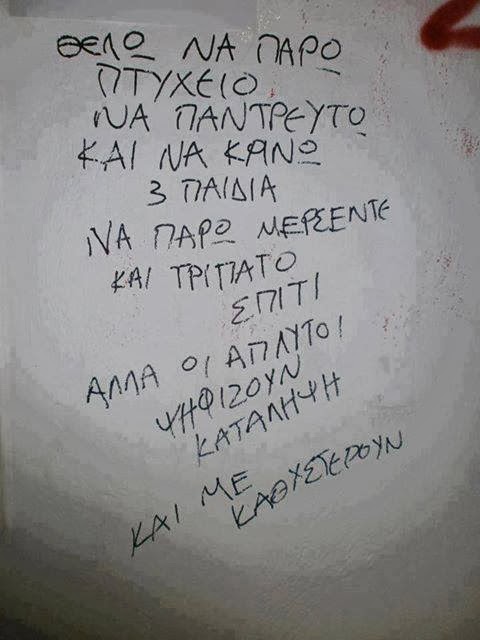 ΘΕΛΩ ΝΑ ΠΑΡΩ
ΠΤΥΧΕΙΟ
ΝΑ ΠΑΝΤΡΕΥΤΩ
ΚΑΙ ΝΑ ΚΑΝΩ
3 ΠΑΙΔΙΑ
ΝΑ ΠΑΡΩ ΜΕΡΣΕΝΤΕ
ΚΑΙ ΤΡΙΠΑΤΟ
ΣΠΙΤΙ
ΑΛΛΑ ΟΙ ΑΠΛΥΤΟΙ
ΨΗΦΙΖΟΥΝ
ΚΑΤΑΛΗΨΗ
ΚΑΙ ΜΕ
ΚΑΘΥΣΤΕΡΟΥΝ